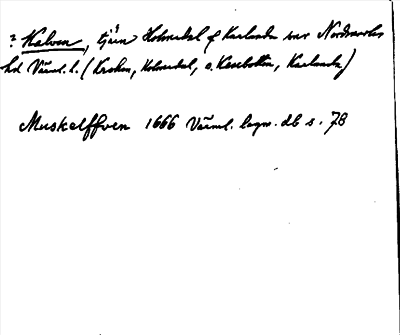 ? Kalven, tjärn Holmedal o Karlanda snr Nordmarks
hd Värml. l. (Kroken, Holmedal, o. Kasebolen, Karlanda)
Muskelffven 1666 Värml. lagm. db s. 78